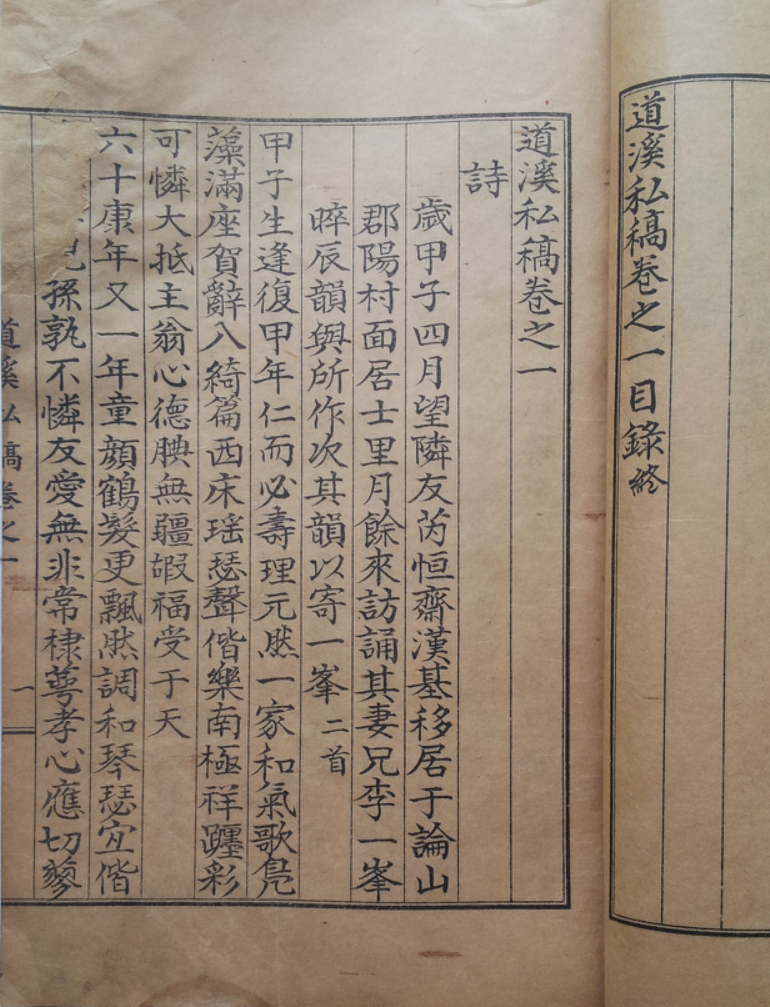 道溪私稿卷之一目錄終
道溪私稿卷之一
詩
歲甲子四月望隣友芮恒齋漢基移居于論山
郡陽村面居士里月餘來訪誦其妻兄李一峯
晬辰韻與所作次其韻以寄一峯二首
甲子生逢復甲年仁而必壽理元然一家和氣歌鳧
藻滿座賀辭八綺篇西床瑶瑟聲偕樂南極祥躔彩
可憐大抵主翁心德腆無疆嘏福受于天
六十康年又一年童顔鶴髮更飄然調和琴瑟宜偕
兒孫孰不憐友愛無非常棣萼孝心應切蓼
道溪私稿卷之一
一